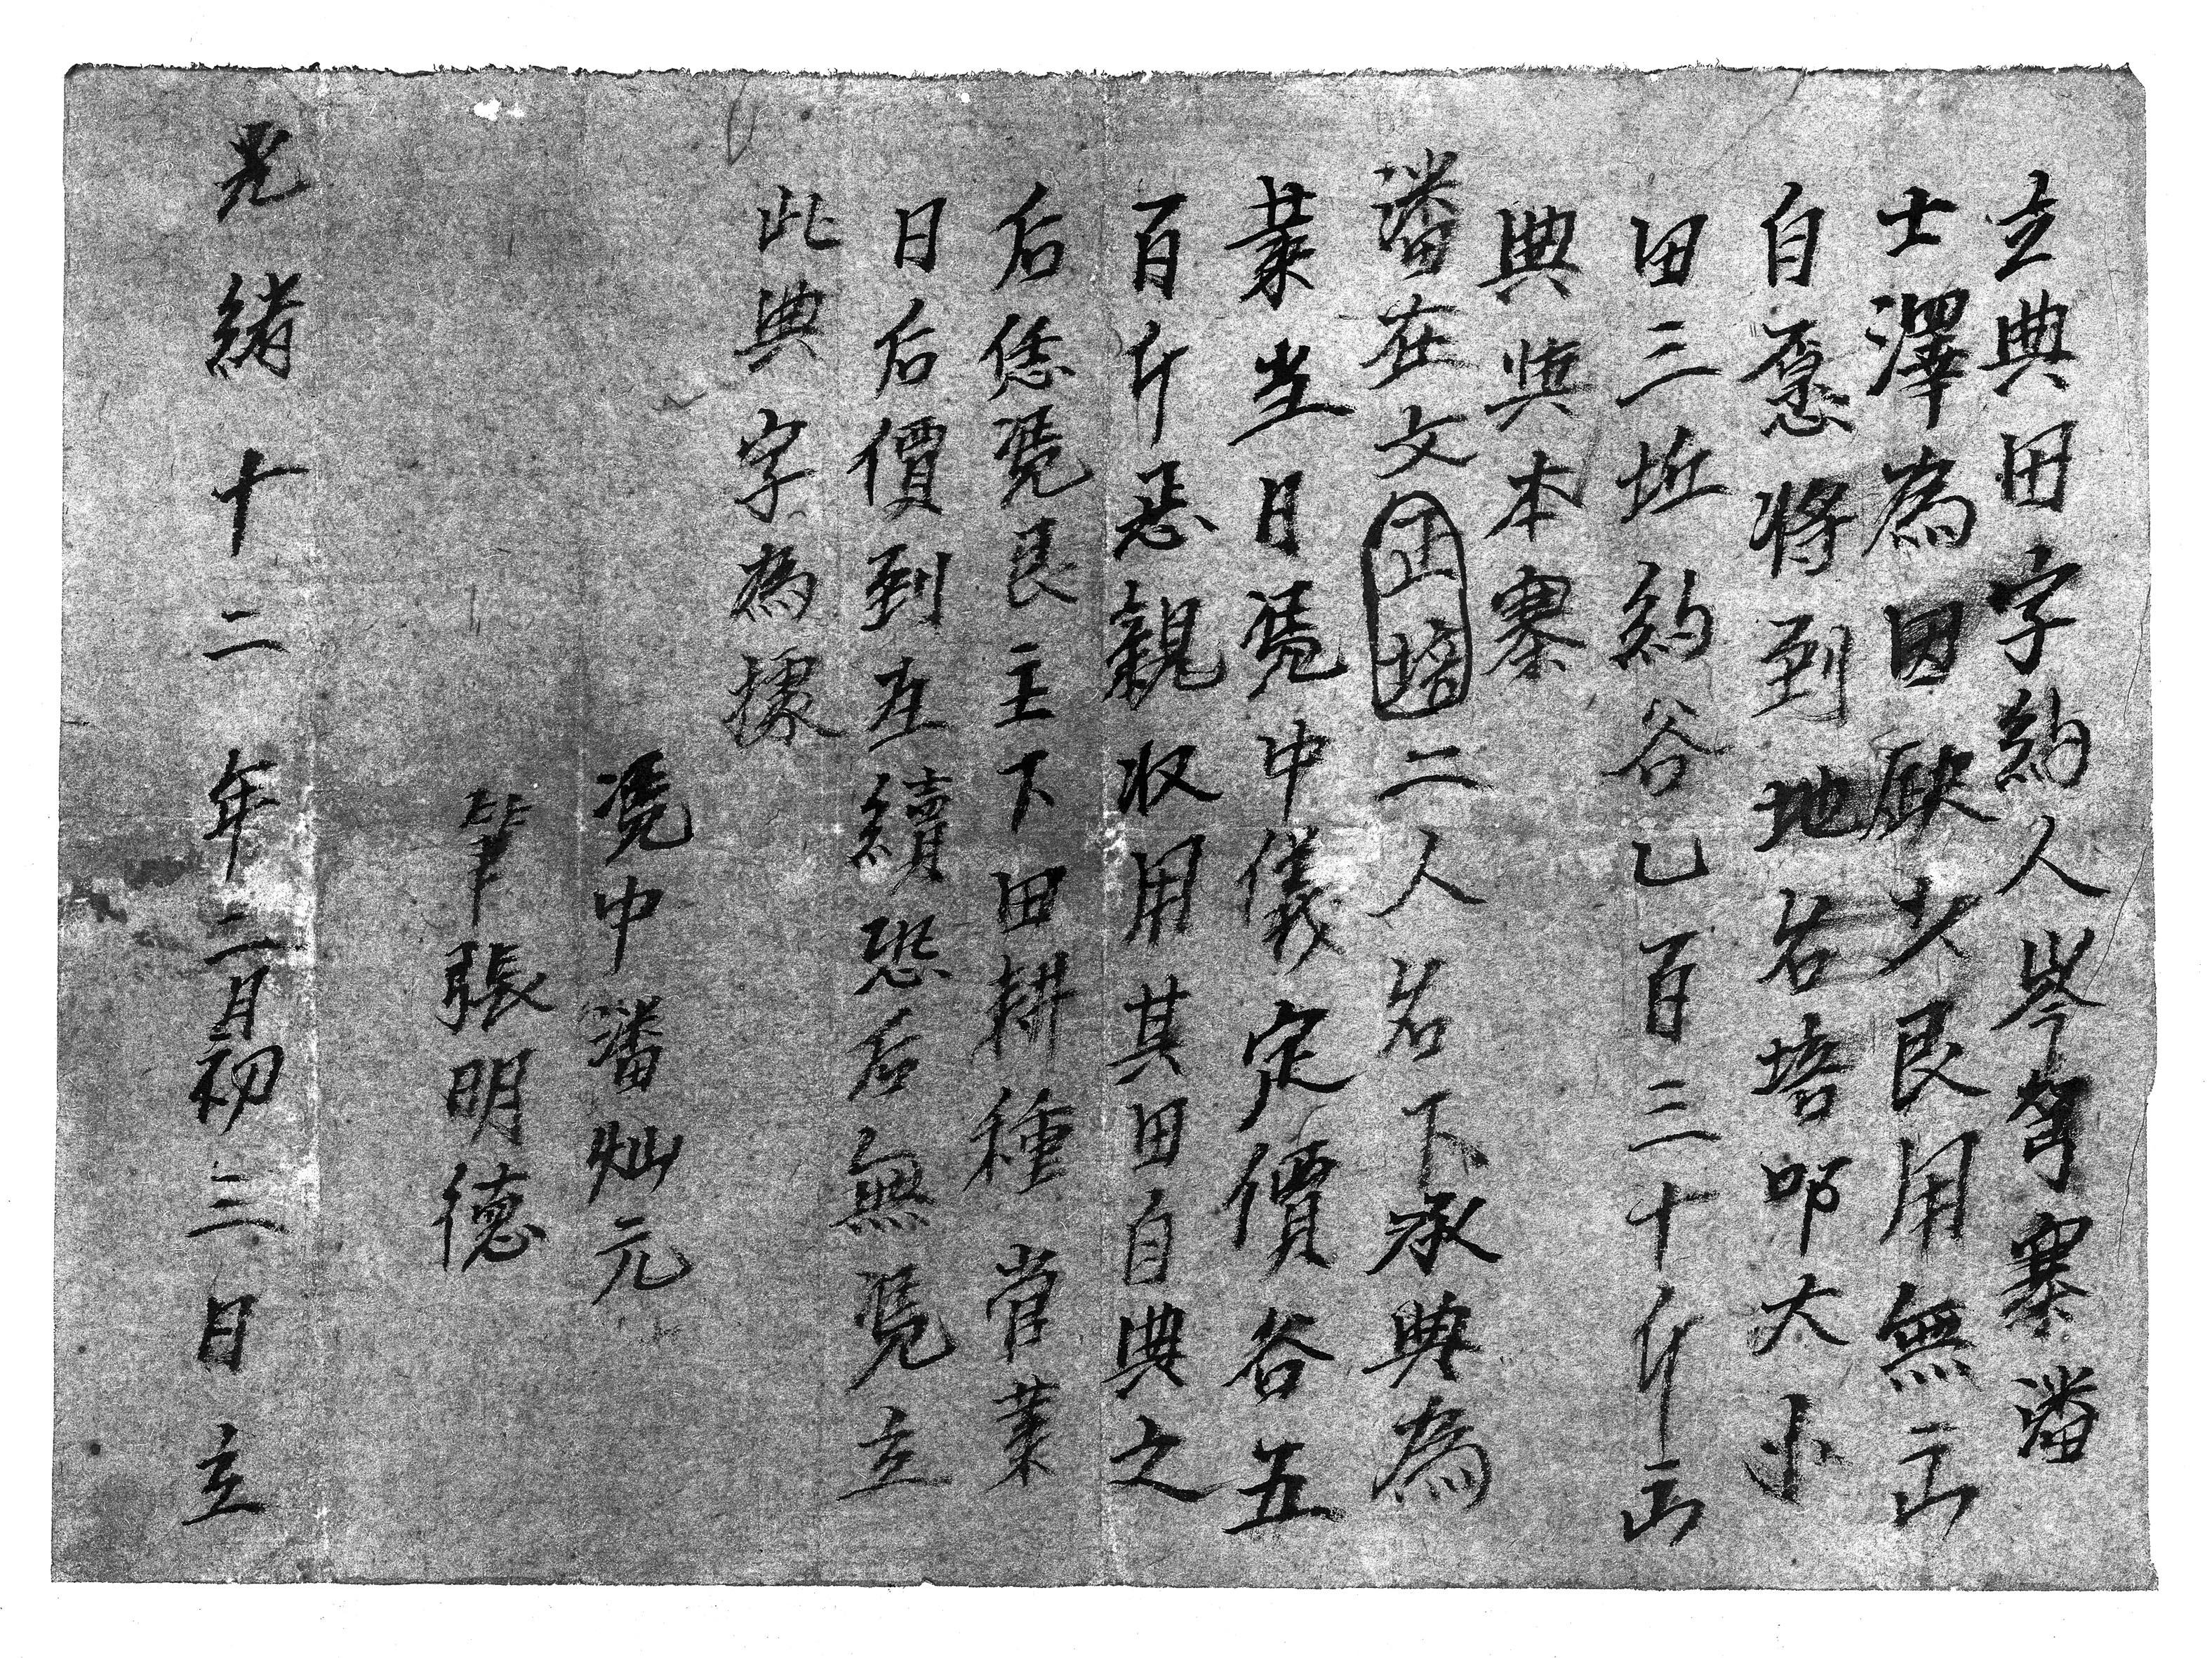 立典田字約人岑穹寨潘
士澤為因缺少艮用無
自愿將到地名培叩大小
田三坵約谷乙百三十斤
典與本寨
潘在文正培二人名下承典為
業当日凭中儀定價谷五
百斤親収用其田自典之
后恁凭艮主下田耕種管業
日后價到在續恐后無凭立
此典字為據
凭中潘灿元
筆張明德
光緒十二年二月初三日立